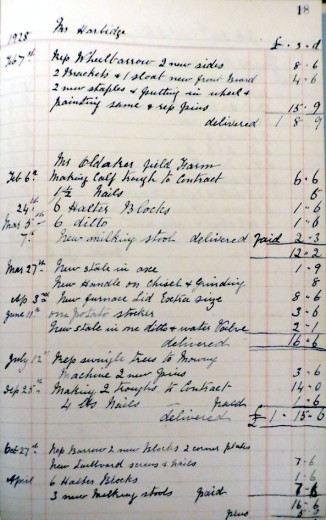 18
1928 Mr Harbidge £ - s - d
Feb 7th Rep Wheelbarrow 2 new sides 8 - 6
2 Brackets & 1 sloat new front Board 4 - 6
2 new staples & putting in wheel &
painting same & rep Pins 15 - 9
delivered 1 8 9
Mr Oldaker Field Farm
Feb 6th Making Calf trough to Contract 6 - 6
1 ½ Nails 6
24th 6 Halter Blocks 1 - 6
Mar 5th 6 ditto 1 - 6
7th New milking stool delivered Paid 2 - 3
12 - 2
Mar 27th New stale in axe 1 - 9
New Handle on Chisel & grinding 8
Ap 3rd New furnace Lid Extra size 8 - 6
June 11th one Potato 3 - 6
New stale in one ditto & water 2 - 1
delivered 16 - 6
July 12th Rep swingle trees to Mowing
Machine 2 new Pins 3 - 6
Sep 25th Making 2 troughs to Contract 14 - 0
4 lbs Nails 1 - 6
delivered £ 1 - 15 - 6
Oct 27th Rep Harrow 2 new Blocks 2 corner plates
New screws & nails 7 - 6
April 6 Halter Blocks 1 - 6
3 new Milking stools paid 7 - 6
16 - 6